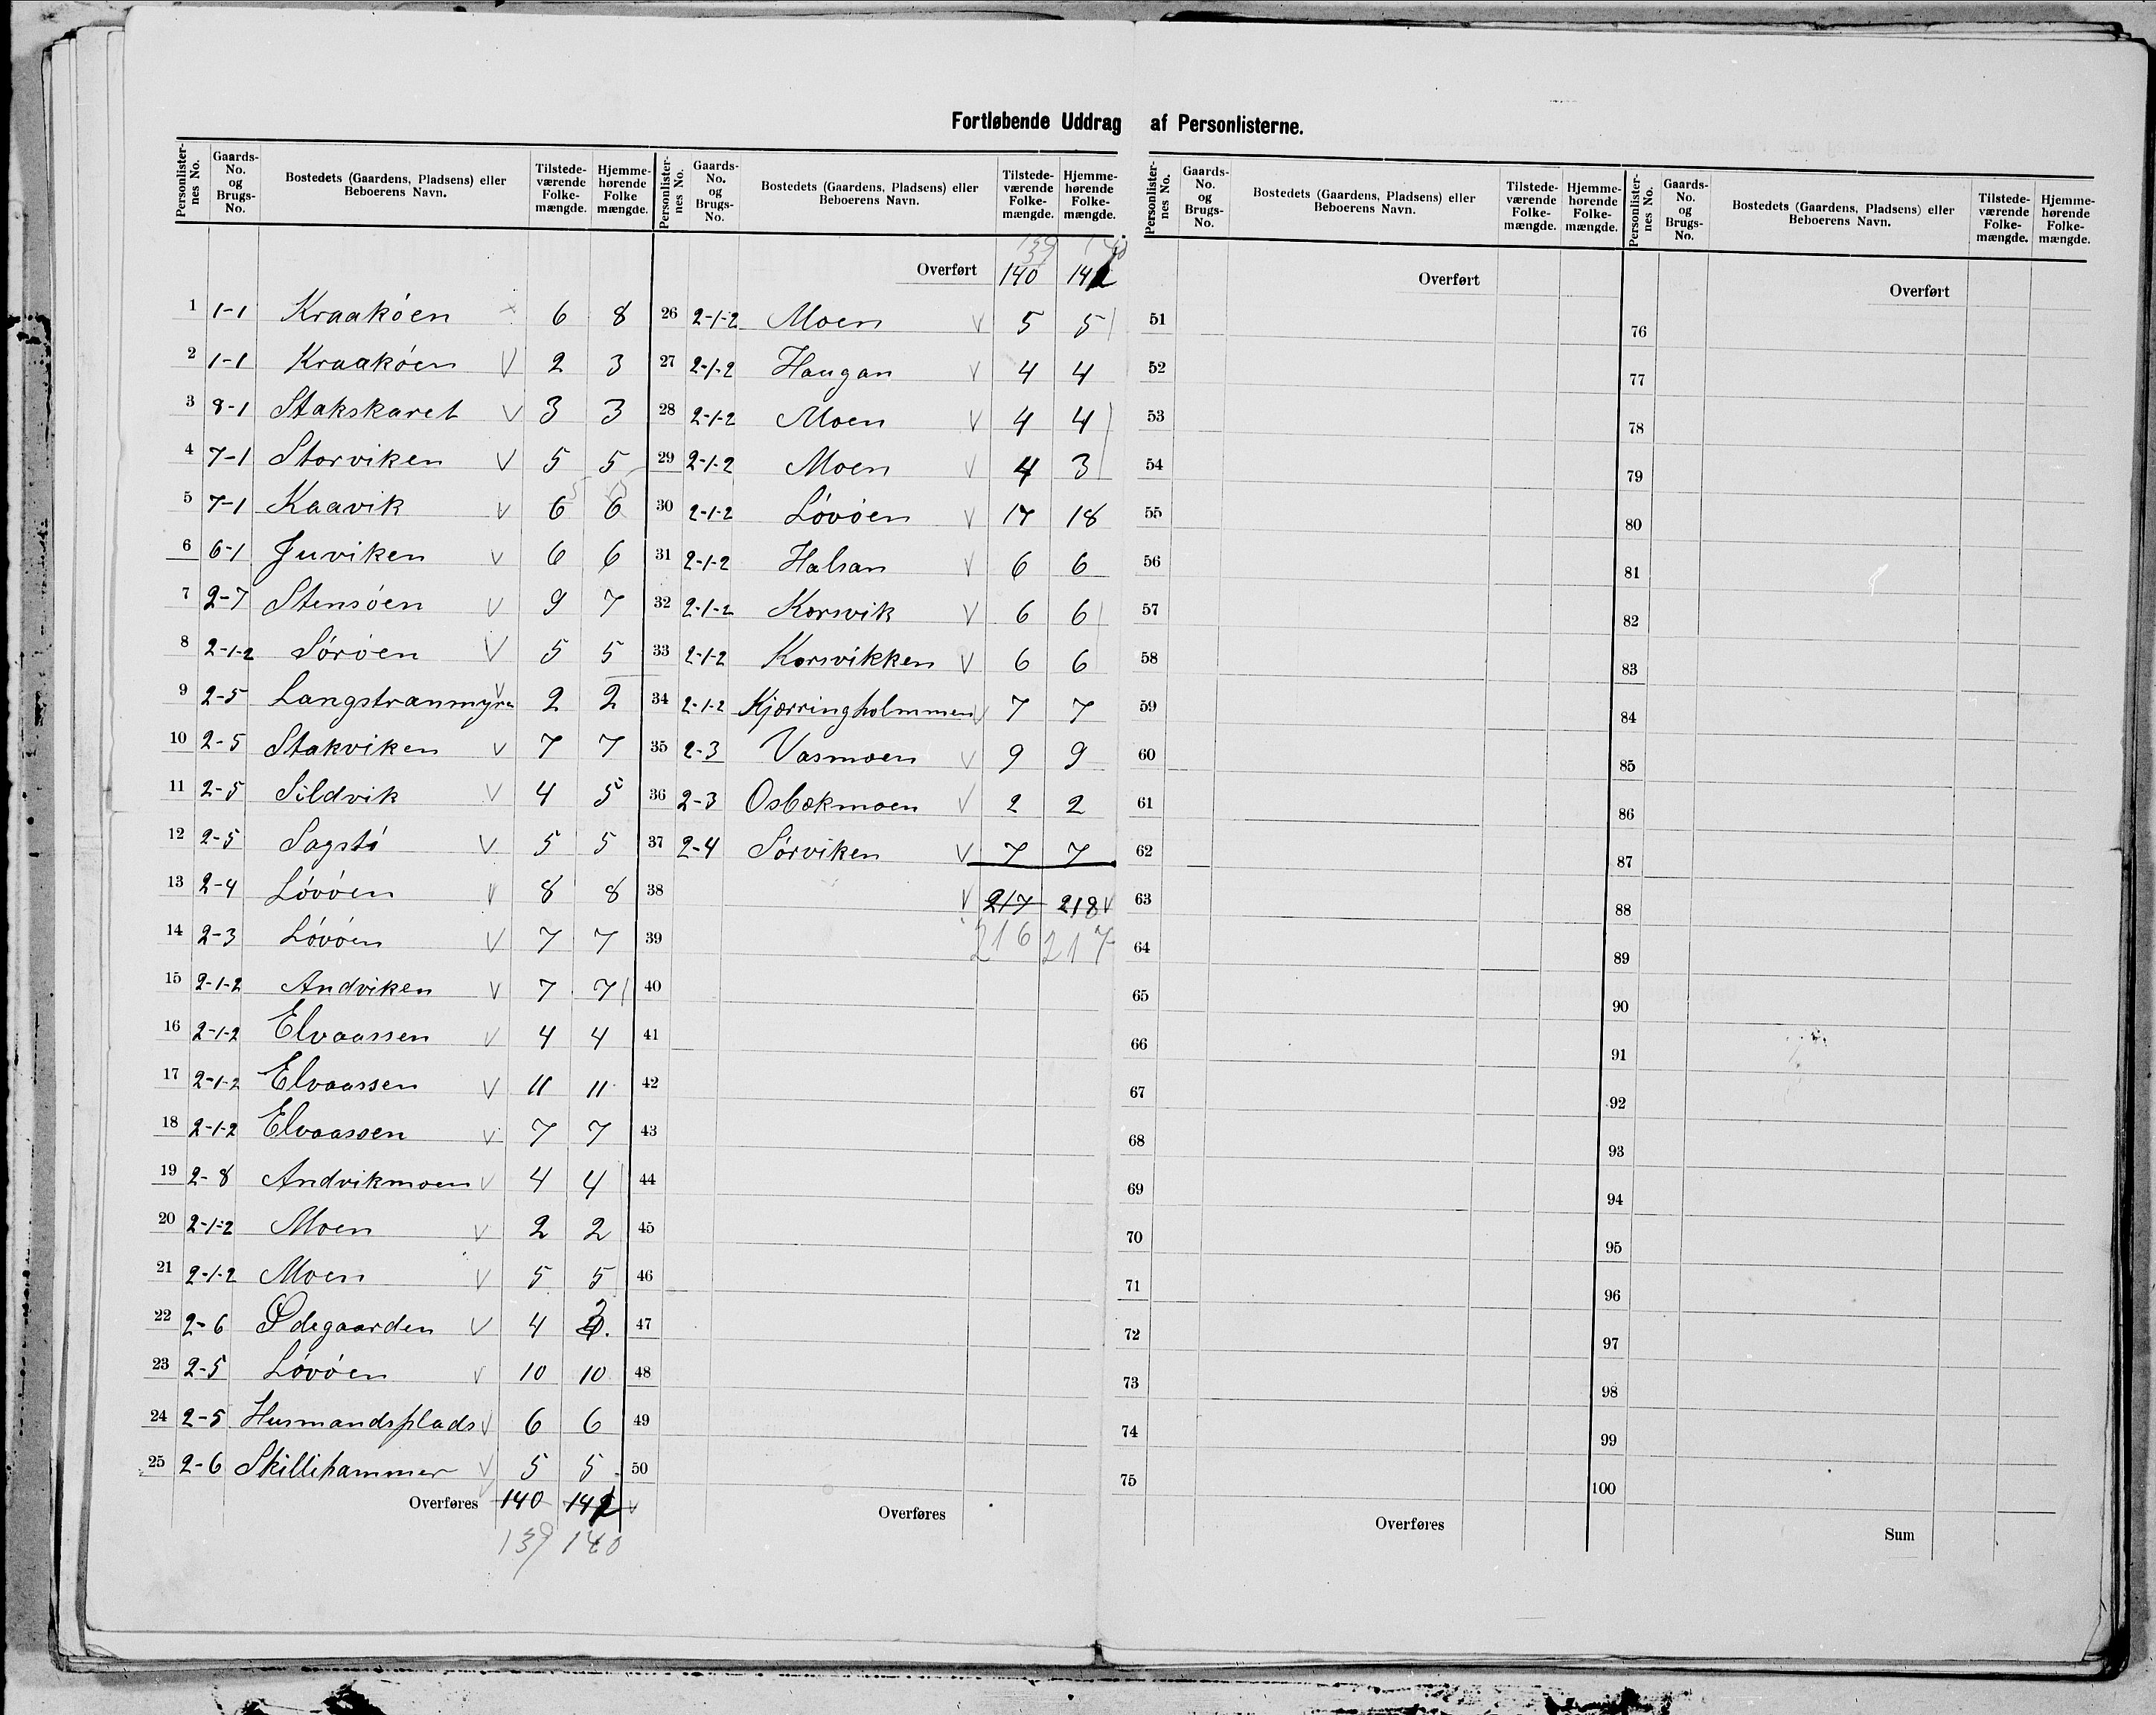 Fortløbende Uddrag af Personlisterne.
Personlister-nes No. Gaards-No. og Brugs-No. Bostedets (Gaardens, Pladsens) eller Beboerens Navn. Tilstede-værende Folke-mængde. Hjemme-hørende Folke mængde.
1 1-1 Kraakøen 6 8
2 1-1 Kraakøen V 2 3
3 8-1 Stakskaret V 3 3
4 7-1 Storviken V 5 5
5 7-1 Kaavik V 6 6 5 5
6 6-1 Juviken V 6 6
7 2-7 Stensøen V 9 7
8 2-1-2 Sørøen V 5 5
9 2-5 Langstranmyra V 2 2
10 2-5 Stakviken V 7 7
11 2-5 Sildvik V 4 5
12 2-5 Sagstø V 5 5
13 2-4 Løvøen V 8 8
14 2-3 Løvøen V 7 7
15 2-1-2 Andviken V 7 7
16 2-1-2 Elvaassen V 4 4
17 2-1-2 Elvaassen V 11 11
18 2-1-2 Elvaassen V 7 7
19 2-8 Andvikmoen V 4 4
20 2-1-2 Moen V 2 2
21 2-1-2 Moen V 5 5
22 2-6 Ødegaarden V 4 3
23 2-5 Løvøen V 10 10
24 2-5 Husmandsplads V 6 6
25 2-6 Skillihammer V 5 5
Overføres 140 142 V
139 140
Personlister-nes No. Gaards-No. og Brugs-No. Bostedets (Gaardens, Pladsens) eller Beboerens Navn. Tilstede-værende Folke-mængde. Hjemme-hørende Folke-mængde.
139 140
Overført 140 142
26 2-1-2 Moen V 5 5
27 2-1-2 Haugan V 4 4
28 2-1-2 Moen V 4 4
29 2-1-2 Moen V 4 3
30 2-1-2 Løvøen V 17 18
31 2-1-2 Halsan V 6 6
32 2-1-2 Korsvik V 6 6
33 2-1-2 Korsvikken V 6 6
34 2-1-2 Kjærringholmmen V 7 7
35 2-3 Vasmoen V 9 9
36 2-3 Osbækmoen V 2 2
37 2-4 Sørviken V 7 7
38 V 217 218 V
39 216 217
40
41
42
43
44
45
46
47
48
49
50
Overføres
Personlister-nes No. Gaards-No. og Brugs-No. Bostedets (Gaardens, Pladsens) eller Beboerens Navn. Tilstede-værende Folke-mængde. Hjemme-hørende Folke-mængde.
Overført
51
52
53
54
55
56
57
58
59
60
61
62
63
64
65
66
67
68
69
70
71
72
73
74
75
Overføres
Personlister-nes No. Gaards-No. og Brugs-No. Bostedets (Gaardens, Pladsens) eller Beboerens Navn. Tilstede-værende Folke-mængde. Hjemme-hørende Folke-mængde.
Overført
76
77
78
79
80
81
82
83
84
85
86
87
88
89
90
91
92
93
94
95
96
97
98
99
100
Sum